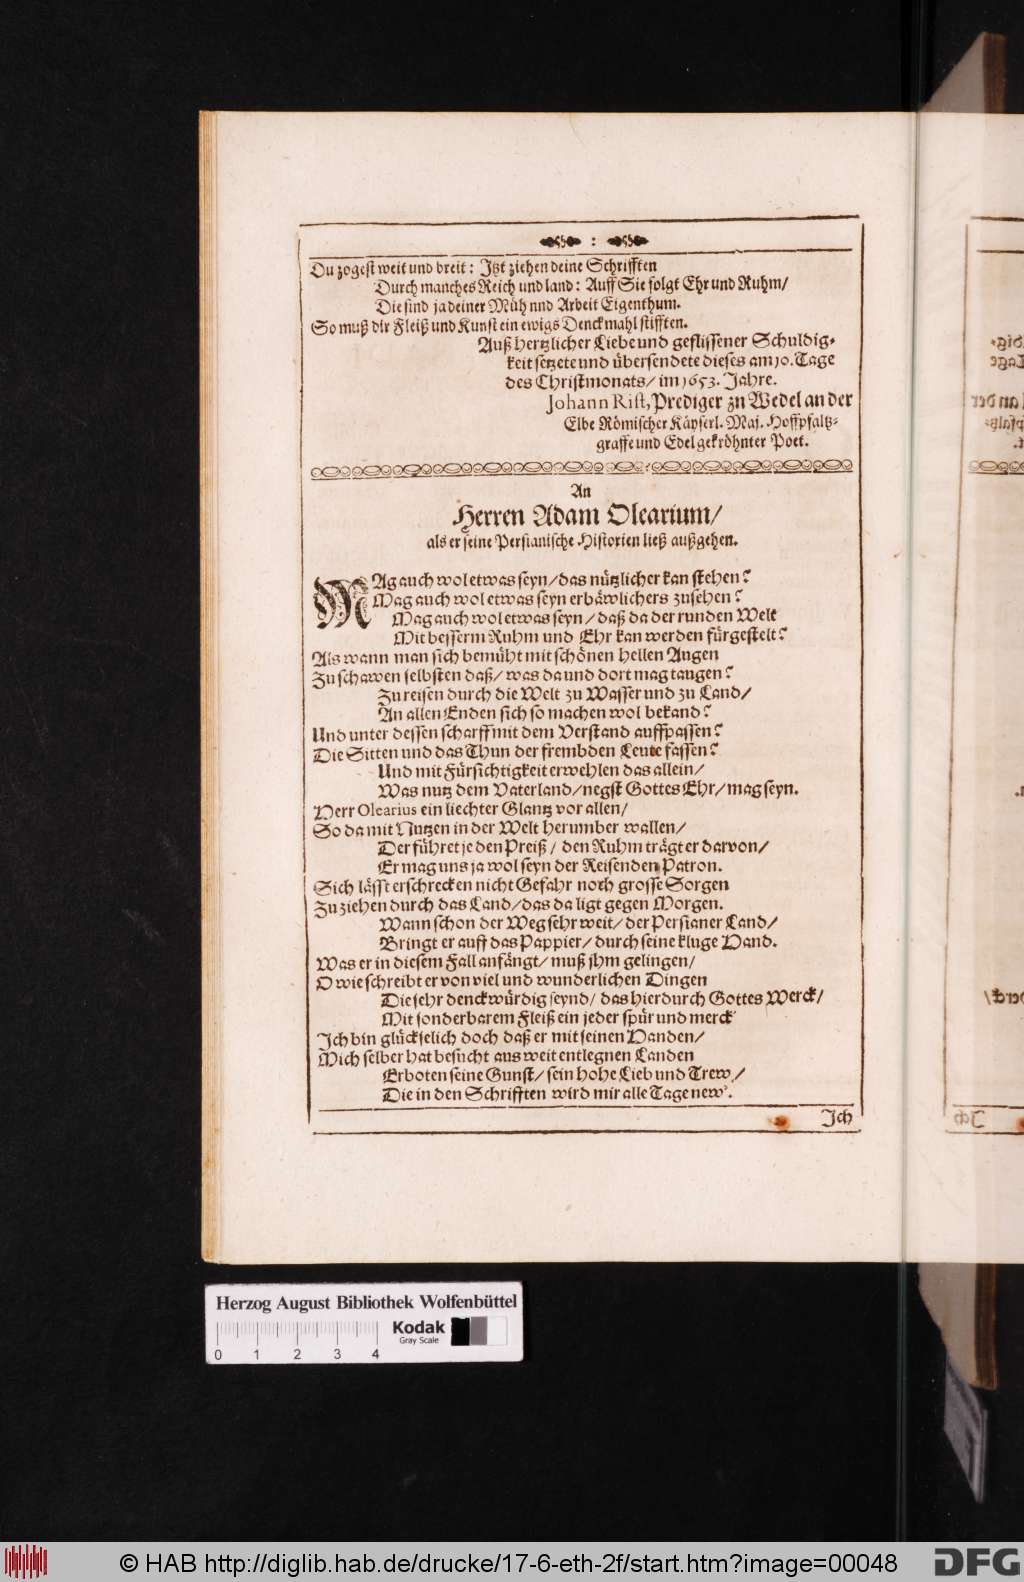 Du zogest weit und breit: Jtzt ziehen deine Schrifften
Durch manches Reich und land: Auff Sie folgt Ehr und Ruhm/
Die sind ja deiner Müh nnd Arbeit Eigenthum.
So muß dir Fleiß und Kunst ein ewigs Denckmahl stifften.
Auß hertzlicher Liebe und geflissener Schuldig-
keit setzete und übersendete dieses am 10. Tage
des Christmonats/ im 1653. Jahre.
Johann Rist, Prediger zu Wedel an der
Elbe Römischer Käyserl. Maj. Hoffpfaltz-
graffe und Edel gekröhnter Poet.
An
Herren Adam Olearium/
als er seine Persianische Historien ließ außgehen.
MAg auch wol etwas seyn/ das nützlicher kan stehen?
Mag auch wol etwas seyn erbäwlichers zusehen?
Mag auch wol etwas seyn/ daß da der runden Welt
Mit besserm Ruhm und Ehr kan werden fürgestelt?
Als wann man sich bemüht mit schönen hellen Augen
Zu schawen selbsten daß/ was da und dort mag taugen?
Zu reisen durch die Welt zu Wasser und zu Land/
An allen Enden sich so machen wol bekand?
Und unter dessen scharff mit dem Verstand auffpassen?
Die Sitten und das Thun der frembden Leute fassen?
Und mit Fürsichtigkeit erwehlen das allein/
Was nutz dem Vaterland/ negst Gottes Ehr/ mag seyn.
Herr Olearius ein liechter Glantz vor allen/
So da mit Nutzen in der Welt herumber wallen/
Der führet je den Preiß/ den Ruhm trägt er darvon/
Er mag uns ja wol seyn der Reisenden Patron.
Sich lässe erschrecken nicht Gefahr noch grosse Sorgen
Zu ziehen durch das Land/ das da ligt gegen Morgen.
Wann schon der Weg sehr weit/ der Persianer Land/
Bringt er auff das Pappier/ durch seine kluge Hand.
Was er in diesem Fall anfängt/ muß jhm gelingen/
O wie schreibt er von viel und wunderlichen Dingen
Die sehr denckwürdig seynd/ das hierdurch Gottes Werck/
Mit sonderbarem Fleiß ein jeder spür und merck
Jch bin glückselich doch daß er mit seinen Handen/
Mich selber hat besucht aus weit entlegnen Landen
Erboten seine Gunst/ sein hohe Lieb und Trew/
Die in den Schrifften wird mir alle Tage new.
Jch
Herzog August Bibliothek Wolfenbüttel
Kodak
Gray Scale
0 1 2 3 4
© HAB http://diglib.hab.de/drucke/17-6-eth-2f/start.htm?image=00048
DFG